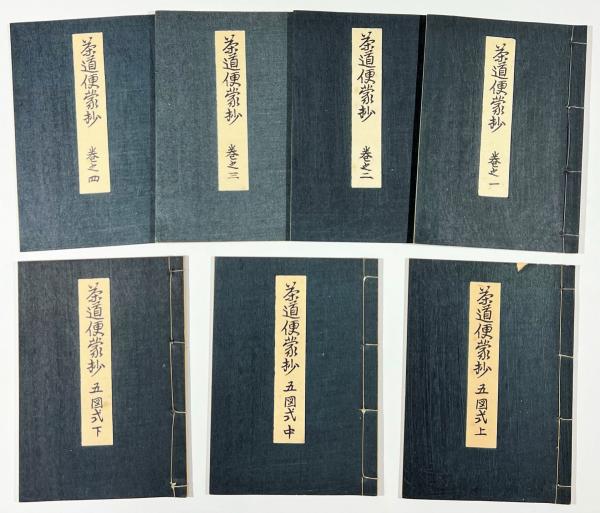 茶道便蒙抄 巻之一
茶道便蒙抄 巻之二
茶道便蒙抄 巻之三
茶道便蒙抄 巻之四
茶道便蒙抄 五 図式 上
茶道便蒙抄 五 図式 中
茶道便蒙抄 五 図式 下